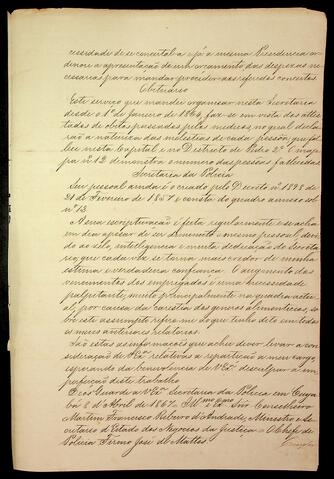 cessidade de se concertal-a e já a mesma Presidencia or-
denou a apresentação de um orçamento das despezas ne-
cessarias para mandar proceder aos referidos concertos
Obituario
Este serviço que mandei organisar nesta Secretaria
desde o 1º de Janeiro de 1864, faz-se em vista dos attes-
tados de obitos passados pelos medicos, no qual decla-
rão a natureza das molestias de cada pessôa que fal-
leceu nesta Capital e no Districto de Pedro 2º. O mappa
nº 12 demonstra o numero das pessôas fallecidas
Secretaria da Policia
Seu pessoal ainda é o creado pelo Decreto nº 1898 de
21 de Fevereiro de 1857 e consta do quadro annexo sob
nº 13.
A sua escripturação é feita regularmente e se acha
em dia apesar de ser diminuto o mesmo pessoal, deven-
do ao zelo, intelligencia e muita dedicação do Secreta-
rio, que cada vez se torna mais credor de minha
estima e verdadeira confiança. O augmento dos
vencimentos dos empregados é uma necessidade
palpitante, muito principalmente na quadra actu-
al, por causa da carestia dos generos alimenticios; so-
bre este assumpto refiro-me ao que tenho dito em todos
os meus anteriores relatorios.
São estas as informações que achei dever levar a con-
sideração de V. Exª relativas a repartição a meu cargo,
esperando da benevolencia de V. Exª desculpar a im-
perfeição deste trabalho
Deos Guarde a V. Exª Secretaria da Policia em Cuya-
bá 8 de Abril de 1867. Illmo e Exmo Snr Conselheiro
Martim Francisco Ribeiro d'Andrade, Ministro e Se-
cretario d'Estado dos Negocios da Justiça = O Chefe
de Policia Firmo José de Mattos.